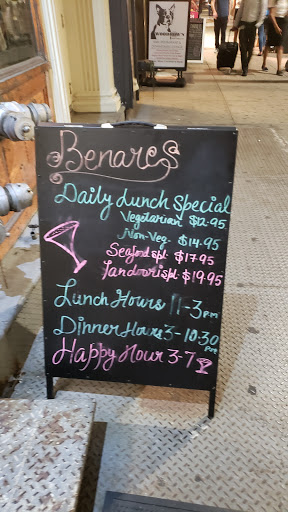 Benares
Daily Lunch Special
Vegetarian $12.95
Non-Veg. $14.95
Seafood spl. $17.95
Tandoori spl. $19.95
Lunch Hours 11-3pm
Dinner Hours 3-10:30pm
Happy Hour 3-7